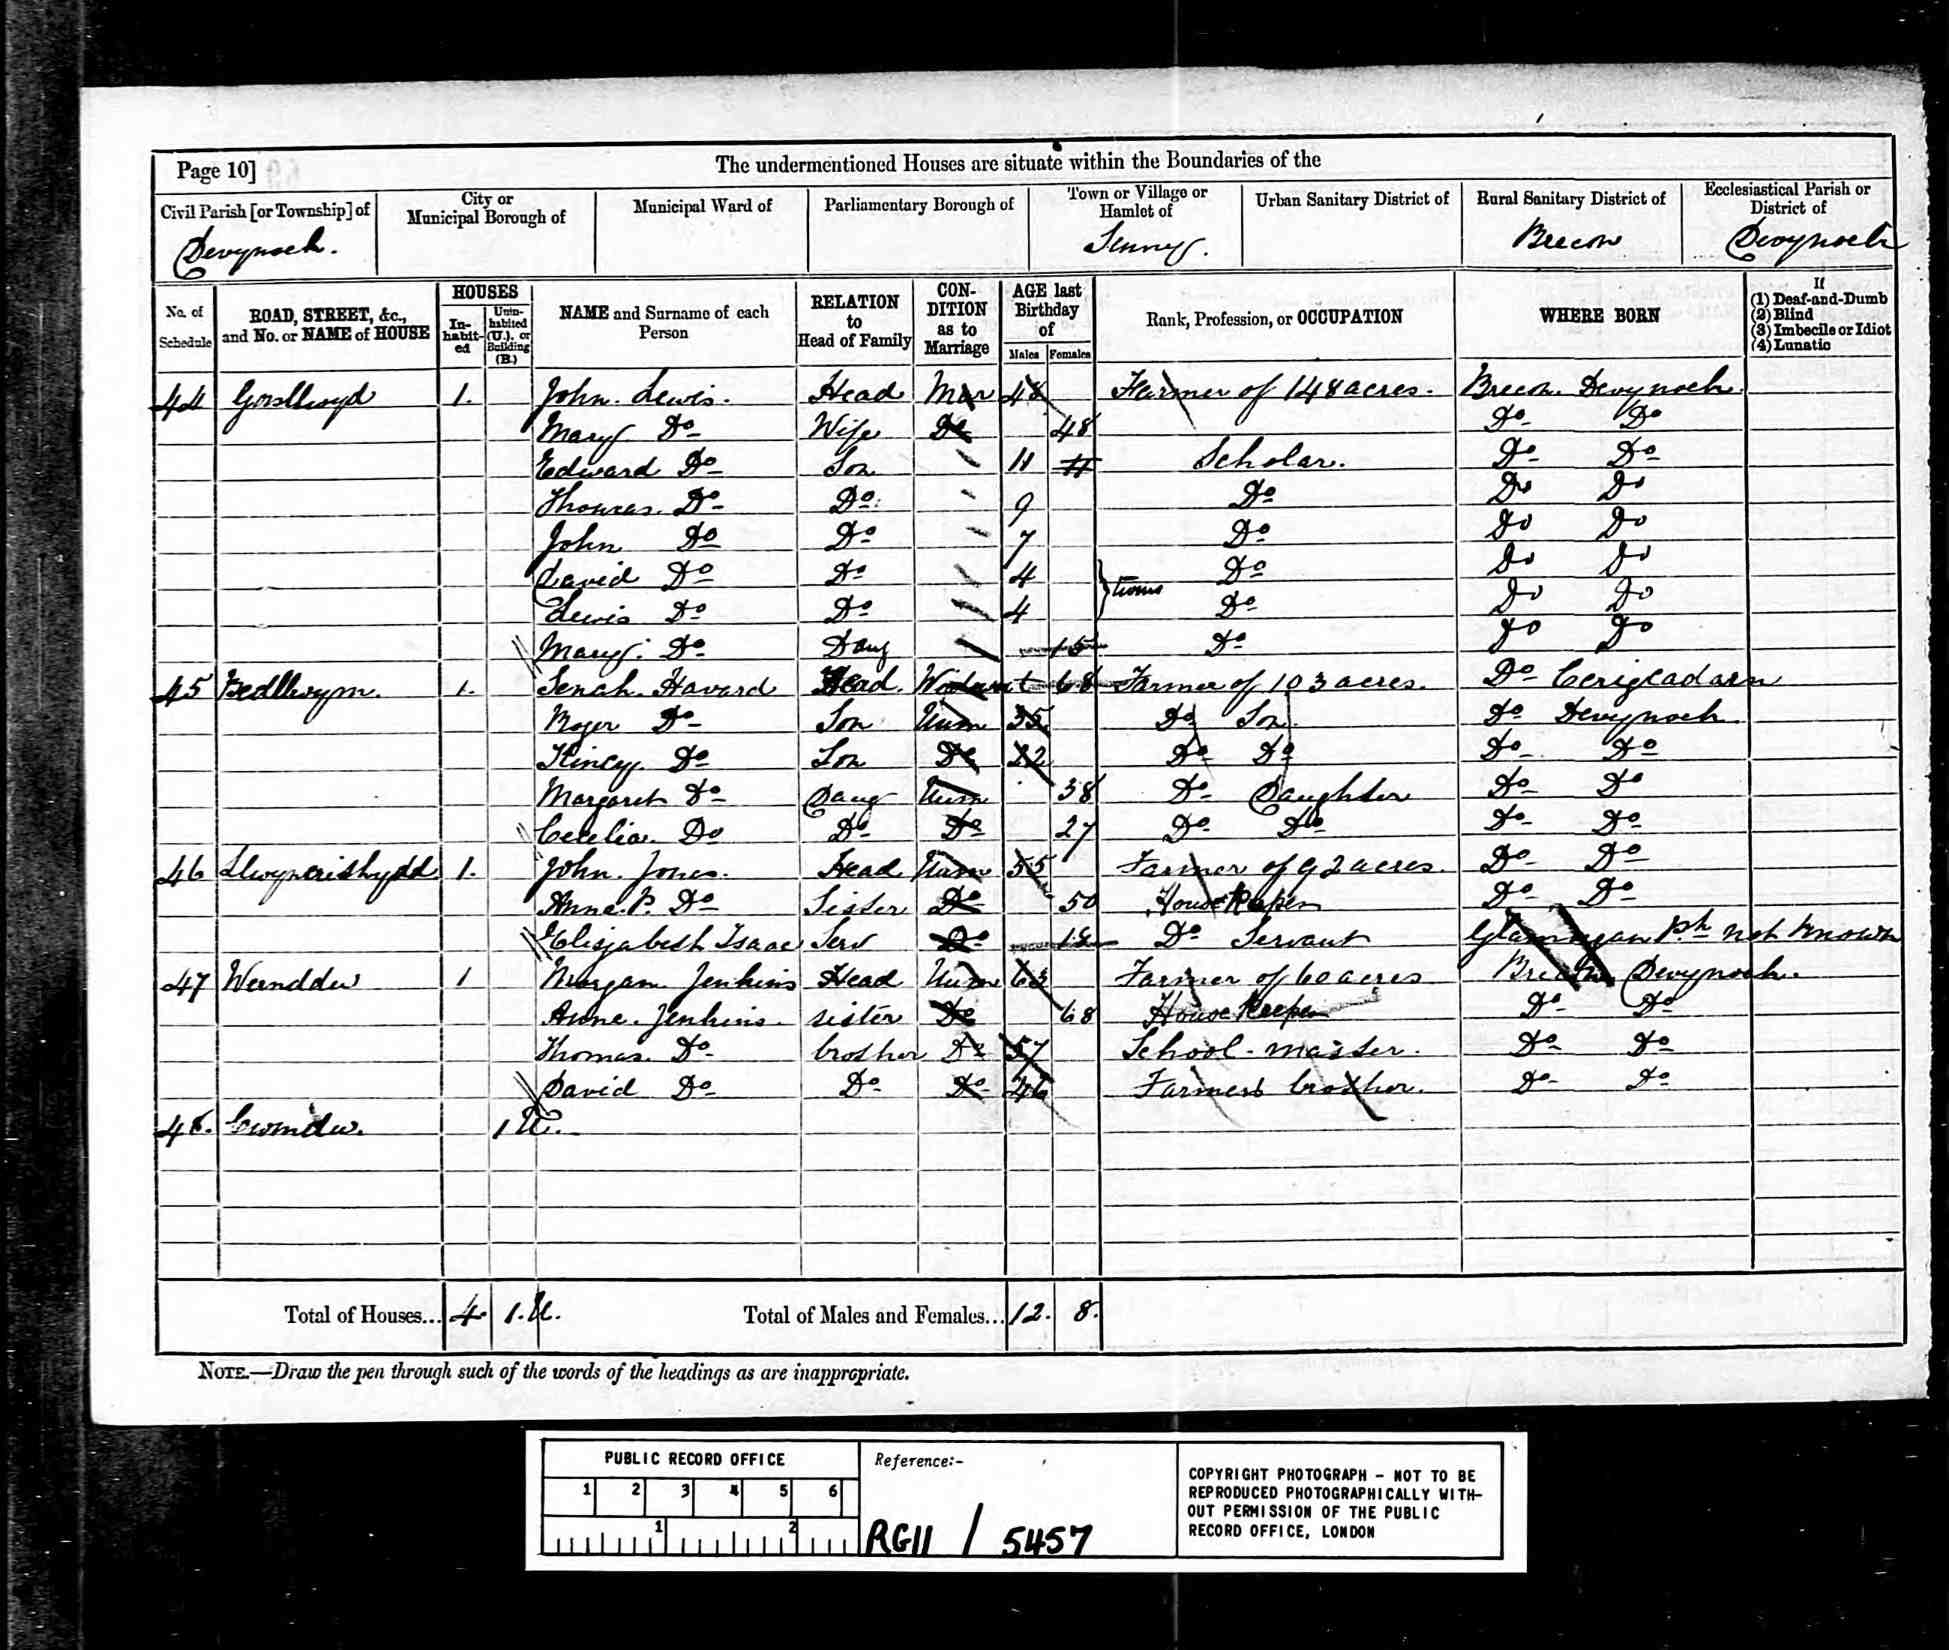 Page 10]
The undermentioned Houses are situate within the Boundaries of the
Civil Parish [or Township] of
City or Municipal Borough of
Municipal Ward of
Parliamentary Borough of
Town or Village or Hamlet of
Urban Sanitary District of
Rural Sanitary District of
Ecclesiastical Parish or District of
Devynock. Senny. Brecon Devynock
No. of Schedule
ROAD, STREET, &c., and No. or NAME of HOUSE
HOUSES
In-habit-ed
Unin-habited (U.), or Building (B.)
NAME and Surname of each Person
RELATION to Head of Family
CON-DITION as to Marriage
AGE last Birthday of
Males Females
Rank, Profession, or OCCUPATION
WHERE BORN
If
(1) Deaf-and-Dumb
(2) Blind
(3) Imbecile or Idiot
(4) Lunatic
44 1. John. Lewis. Head Mar 48 Farmer of 148 acres. Brecon Devynock
Mary Do Wife Do 48 Do Do
Edward Do Son 11 11 Scholar. Do Do
Thomas. Do Do 9 Do Do Do
John Do Do 7 Do Do Do
David Do Do 4 twins Do Do Do
Lewis Do Do 4 Do Do Do
Mary. Do Daug 15 Do Do Do
45 1. Senah. Havard Head. 68 Farmer of 103 acres. Do
Roger Do Son Unm 35 Do Son. Do Devynock
Do Son Do 22 Do Do Do Do
Margaret Do Daug Unm 38 Do Daughter Do Do
Cecelia. Do Do Do 27 Do Do Do Do
46 1. John. Jones. Head Unm 55 Farmer of 92 acres. Do Do
Anne. P. Do Sister Do 50 House Keeper Do Do
Elizabeth Isaac Serv Do Do Servant Glamorgan Psh not known
47 Wernddu 1 Morgan Jenkins Head Unm 63 Farmer of 60 acres Brecon Devynock.
Anne. Jenkins. sister Do 68 House Keeper Do Do
Thomas. Do brother Do 57 School-master. Do Do
David Do Do Do 46 Farmers brother. Do Do
48. Cwmdu. 1 U.
Total of Houses... 4. 1. U. Total of Males and Females... 12. 8.
NOTE.—Draw the pen through such of the words of the headings as are inappropriate.
PUBLIC RECORD OFFICE
1 2 3 4 5 6
1 2
Reference:-
RG11 / 5457
COPYRIGHT PHOTOGRAPH - NOT TO BE
REPRODUCED PHOTOGRAPHICALLY WITH-
OUT PERMISSION OF THE PUBLIC
RECORD OFFICE, LONDON